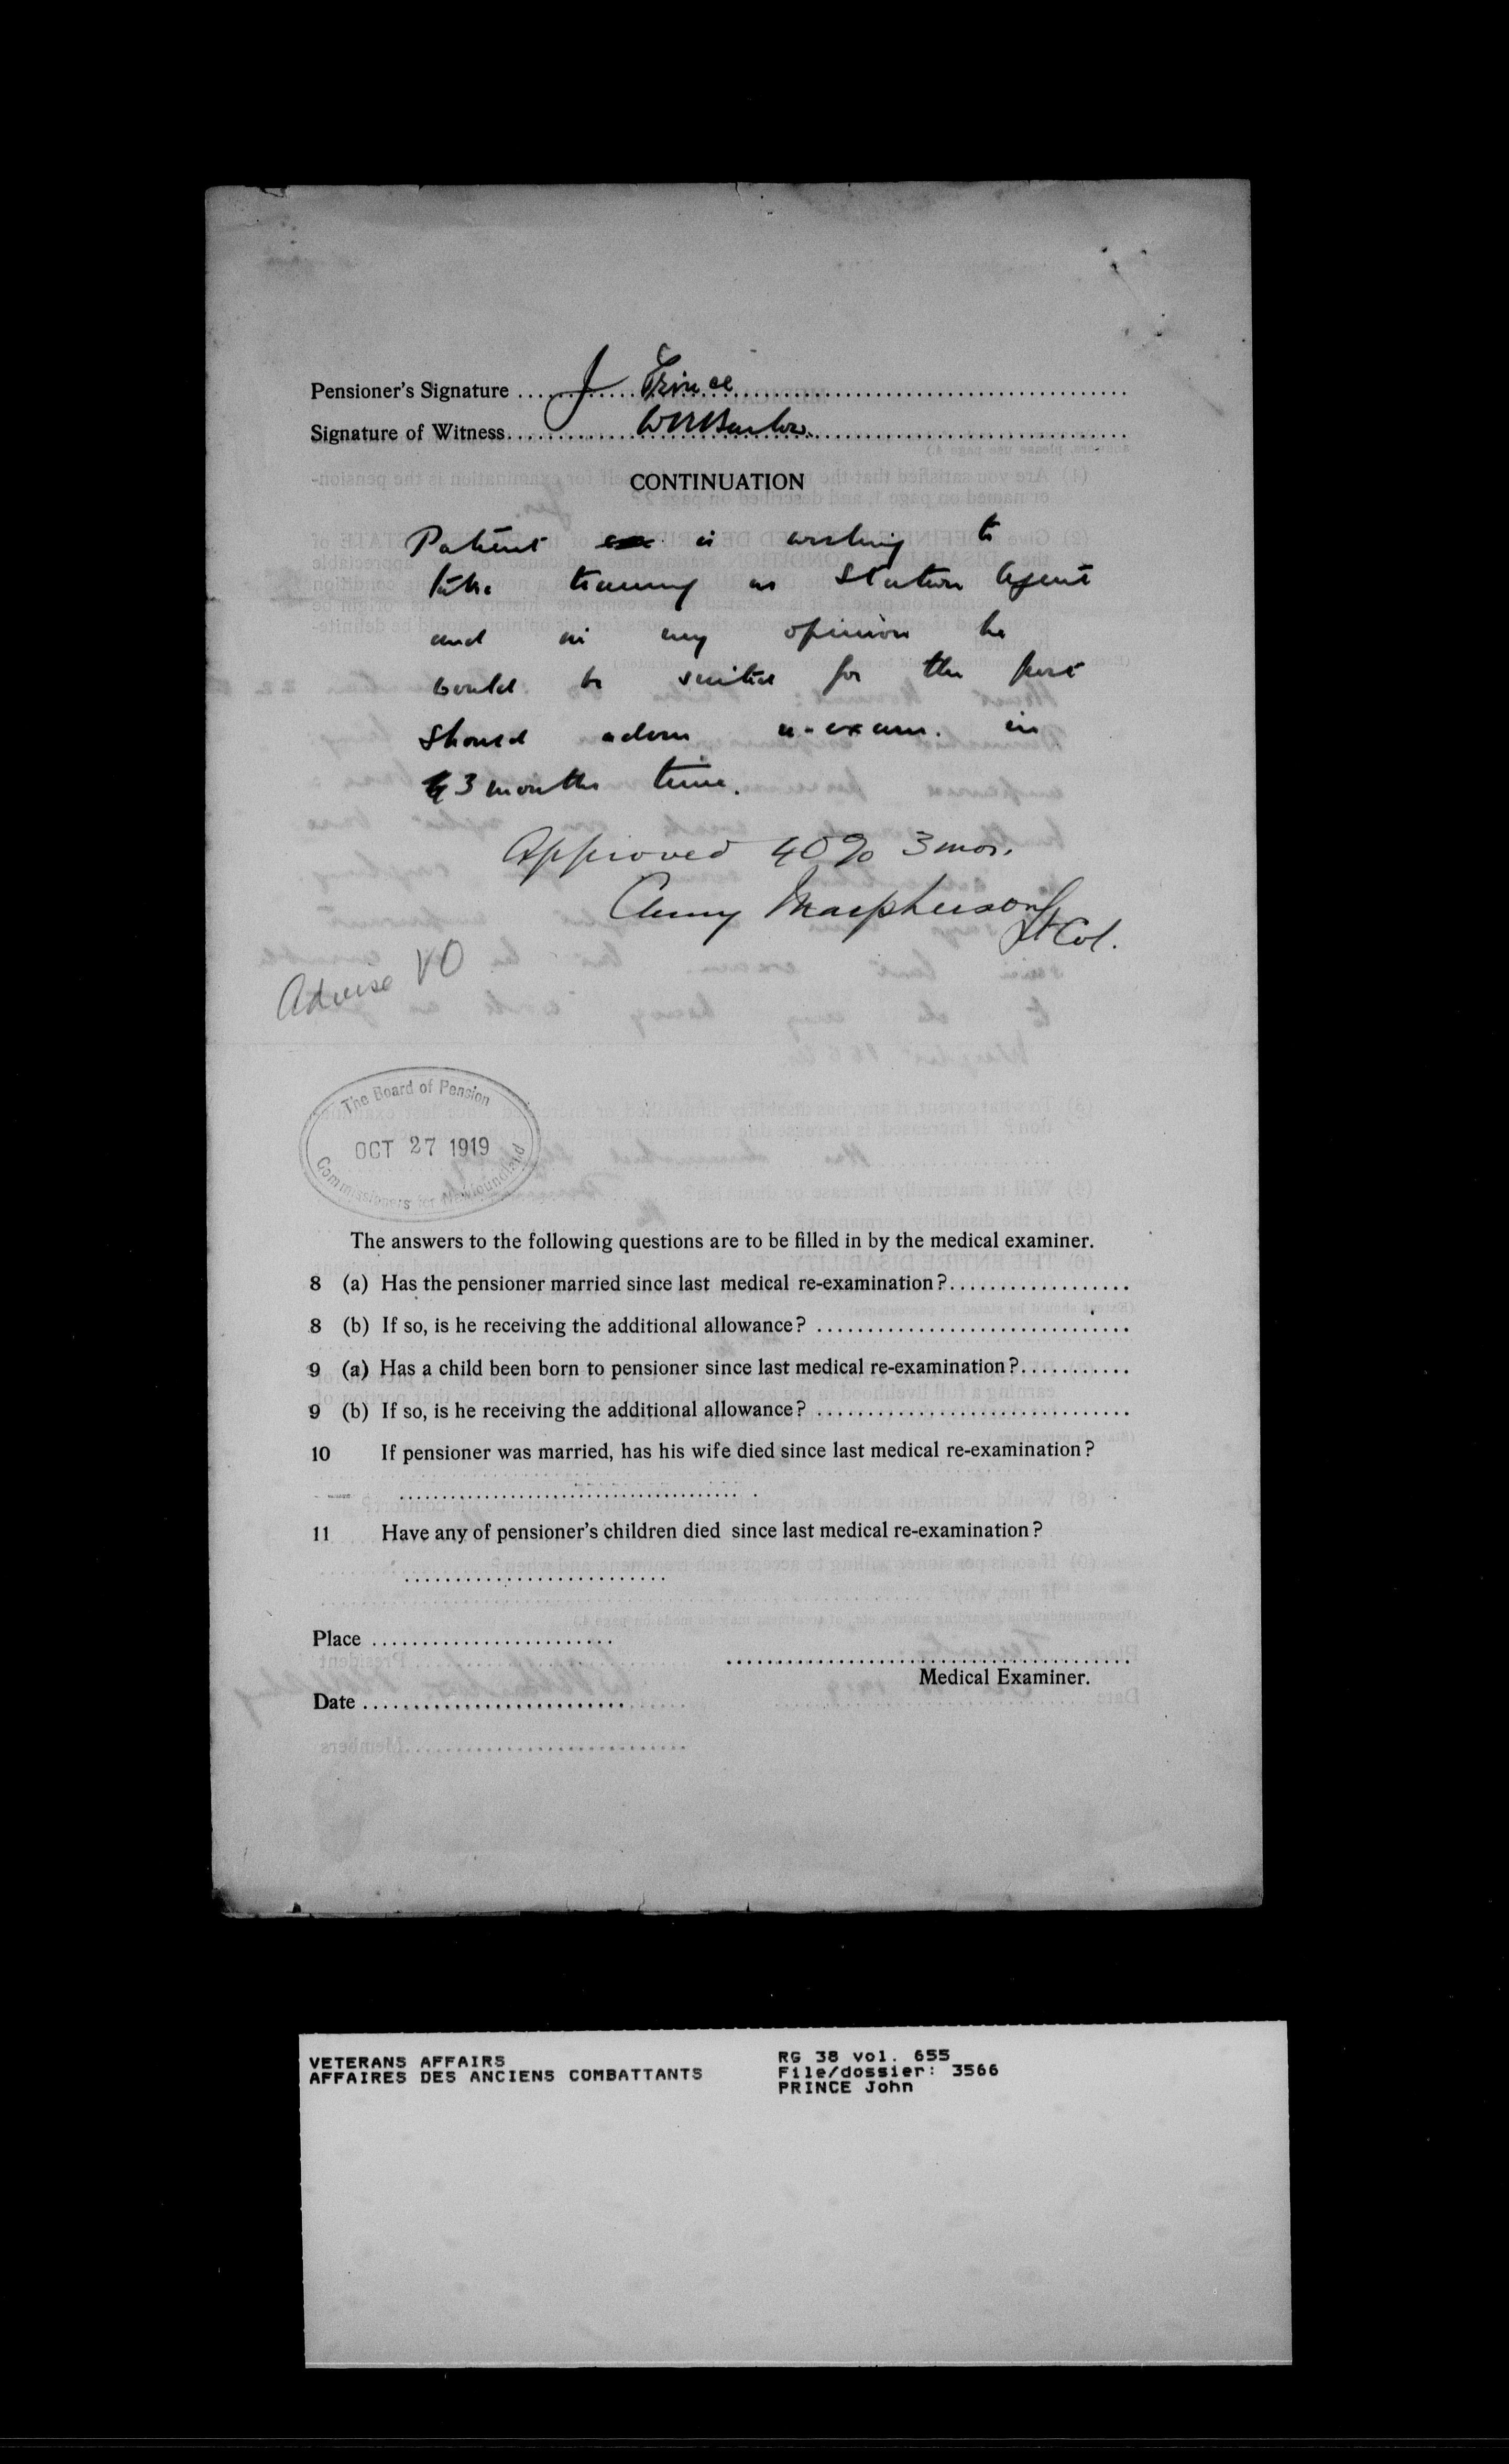 Pensioner's Signature ........ J Prince ........
Signature of Witness ........ WRBarlow ........
CONTINUATION
Patient is wishing to
take training as Station Agent
and in my opinion he
would be suited for the post
Should advise re-exam. in
3 months time.
Approved 40% 3 mos.
Cluny Macpherson
Lt Col.
Advise VO
The Board of Pension
OCT 27 1919
Commissioners for Newfoundland
The answers to the following questions are to be filled in by the medical examiner.
8 (a) Has the pensioner married since last medical re-examination?...................
8 (b) If so, is he receiving the additional allowance? ................................
9 (a) Has a child been born to pensioner since last medical re-examination?...........
9 (b) If so, is he receiving the additional allowance? ................................
10 If pensioner was married, has his wife died since last medical re-examination?
11 Have any of pensioner's children died since last medical re-examination?
Place .........................
Medical Examiner.
Date ...........................
VETERANS AFFAIRS RG 38 vol. 655
AFFAIRES DES ANCIENS COMBATTANTS File/dossier: 3566
PRINCE John